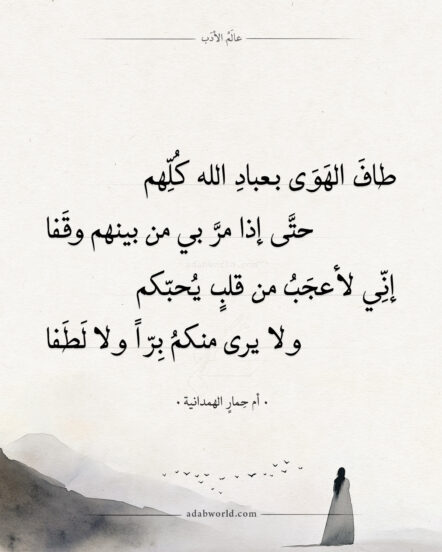 عالَمُ الأدَب
طافَ الهَوَى بعبادِ الله كُلِّهم
حتَّى إذا مرَّ بي من بينهم وقَفا
adabworld.com
إنِّي لأعجَبُ من قلبٍ يُحبّكم
ولا يرى منكمُ بِرّاً ولا لَطَفا
• أم حِمارٍ الهمدانية •
adabworld.com